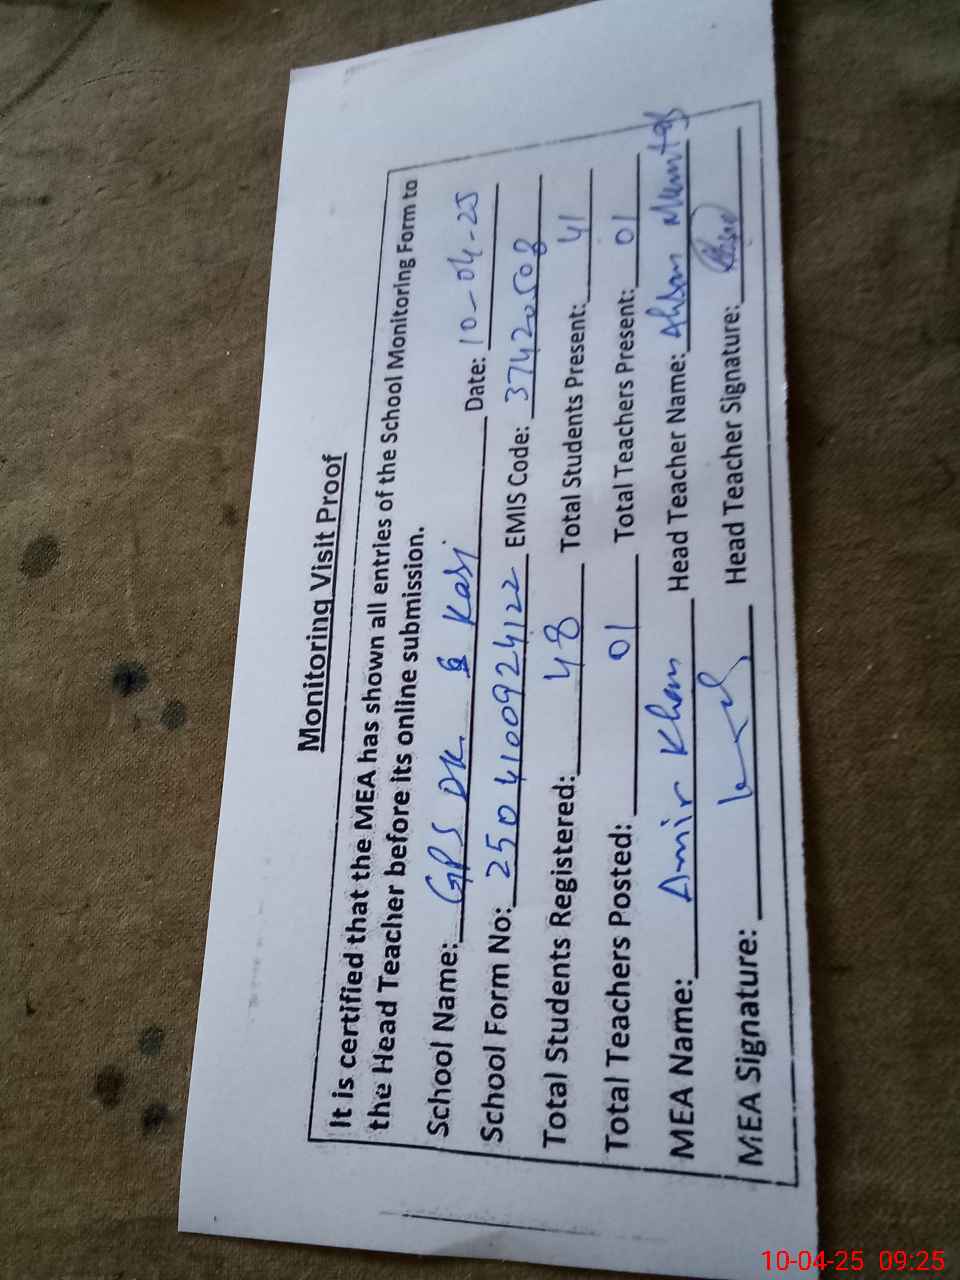 Monitoring Visit Proof
It is certified that the MEA has shown all entries of the School Monitoring Form to
the Head Teacher before its online submission.
School Name: GPS DK. Kasi Date: 10-04-25
School Form No: 2504100924122 EMIS Code: 37420508
Total Students Registered: 48 Total Students Present: 41
Total Teachers Posted: 01 Total Teachers Present: 01
MEA Name: Amir Khan Head Teacher Name: Ahsan Mumtaz
MEA Signature: Head Teacher Signature:
10-04-25 09:25